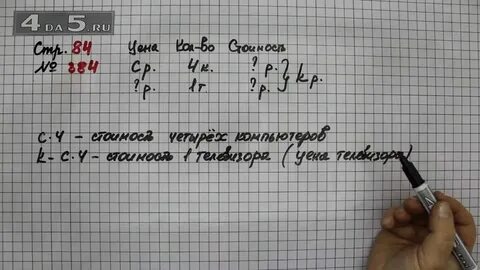 4DA5.RU
Стр. 84 Цена Кол-во Стоимость
№ 384 С р. 4 к. ? р. } k р.
? р. 1 т. ? р.
с·4 - стоимость четырёх компьютеров
k - с·4 - стоимость 1 телевизора (цена телевизора)